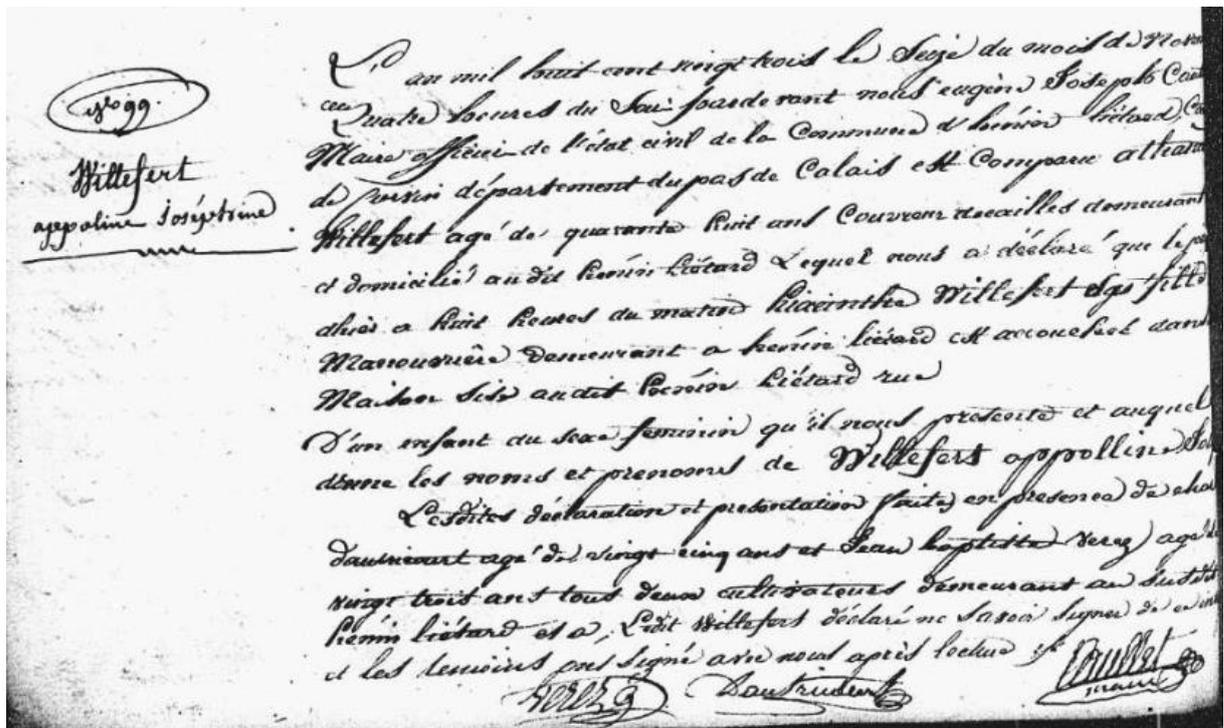 No 99.
Willefert
appoline Joséphine
L'an mil huit cent vingt trois le Seize du mois de Novem
Quatre heures du Soir pardevant nous eugène Joseph
Maire officier de l'état civil de la Commune d'henin liétard,
de département du pas de Calais est Comparu
Willefert agé de quarante huit ans Couvreur decailles demeurant
et domicilié audit henin Liétard Lequel nous a déclaré que le
dhier a huit heures du matin hiacinthe Willefert Sa fille
Manouvrière demeurant a henin liétard est accouchée dans
Maison Sise audit henin Liétard rue
D'un enfant du sexe feminin qu'il nous presente et auquel
donne les noms et prenoms de Willefert appolline Jo
Lesdites déclaration et presentation faites en presence de
dautricourt agé de vingt cinq ans et Jean baptiste Verez agé de
vingt trois ans tous deux cultivateurs demeurant au Susdit
henin liétard et a Ledit Willefert déclaré ne Savoir Signer de ce
et les temoins ont Signé avec nous après lecture
Verez Dautricourt